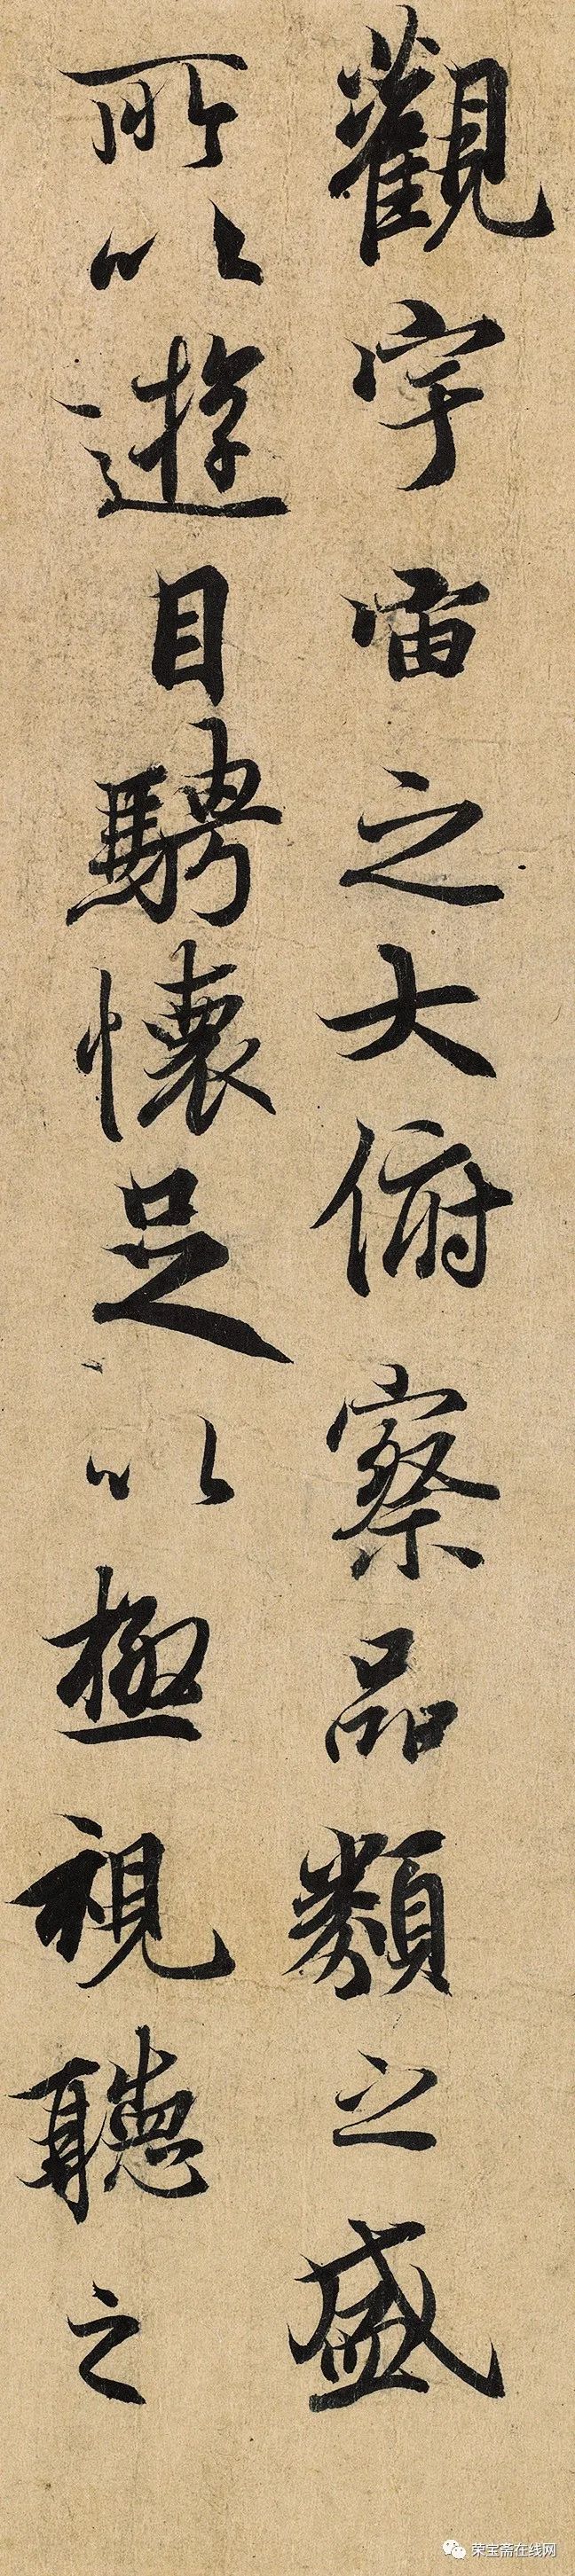 觀宇宙之大俯察品類之盛
所以遊目騁懷足以極視聽之
荣宝斋在线网